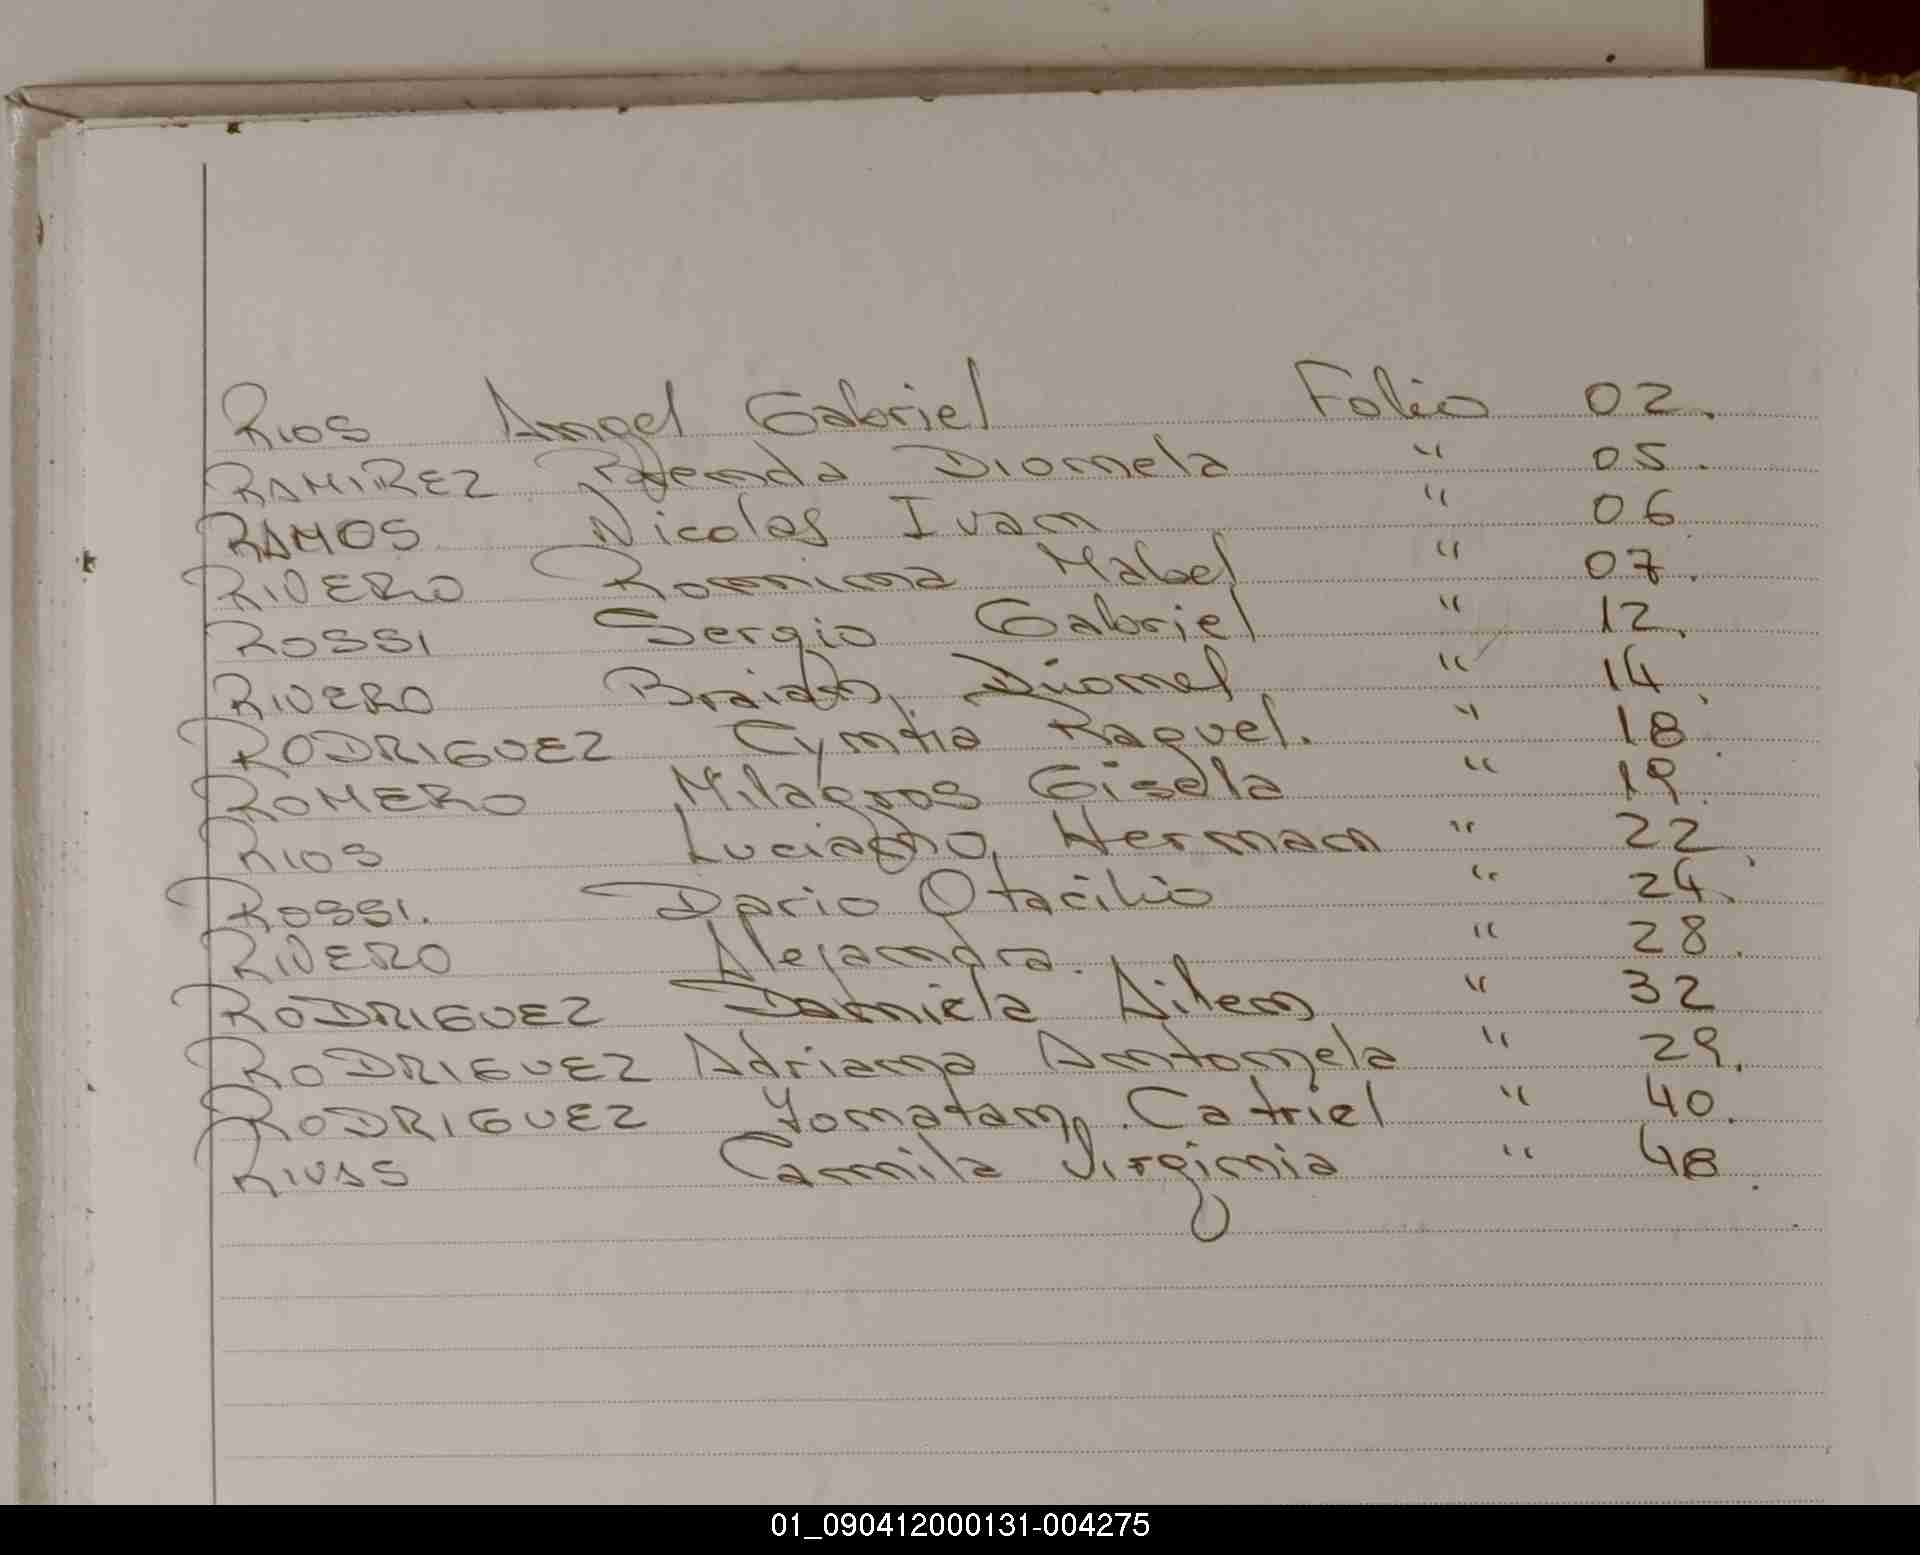 RIOS Angel Gabriel Folio 02.
RAMIREZ Brenda Diomela " 05.
RAMOS Nicolas Ivan " 06
RIVERO Romina Mabel " 07.
ROSSI Sergio Gabriel " 12.
RIVERO Braian Dionel. " 14
RODRIGUEZ Cyntia Raquel. " 18
ROMERO Milagros Gisela " 19.
RIOS Luciano Hernan " 22
ROSSI. Dario Otacilio " 24.
RIVERO Alejandra. " 28.
RODRIGUEZ Daniela Ailen " 32
RODRIGUEZ Adriana Antonela " 29.
RODRIGUEZ Yonatan Catriel " 40.
RIVAS Camila Virginia " 48.
01_090412000131-004275